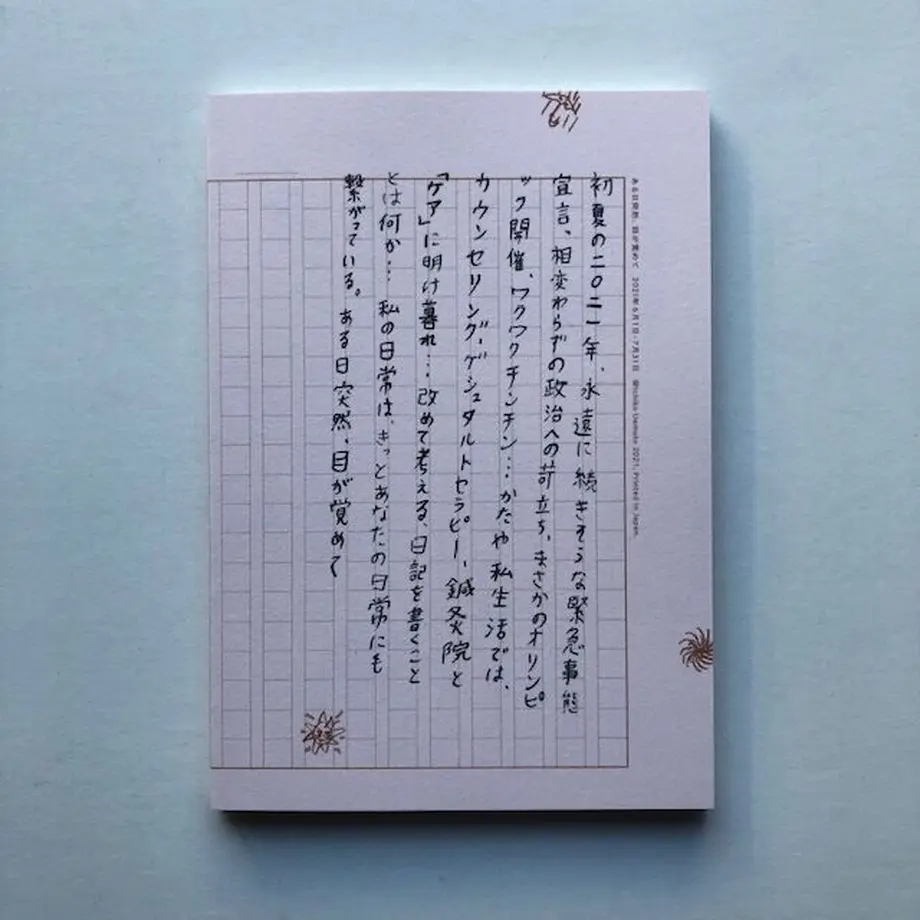 ある日突然、目が覚めて 2021年6月1日-7月31日 ©Ichiko Uemoto 2021, Printed in Japan.
初夏の二〇二一年、永遠に続きそうな緊急事態
宣言、相変わらずの政治への苛立ち、まさかのオリンピ
ック開催、ワクワクチンチン…かたや私生活では、
カウンセリング、ゲシュタルトセラピー、鍼灸院と
「ケア」に明け暮れ…改めて考える、日記を書くこと
とは何か… 私の日常は、きっとあなたの日常にも
繋がっている。ある日突然、目が覚めて